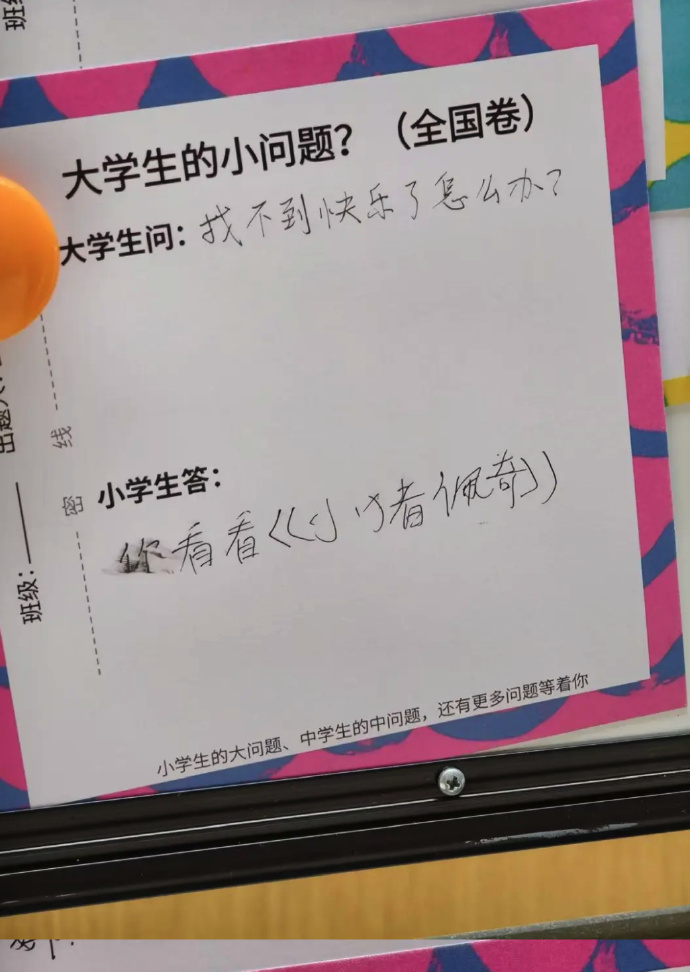 大学生的小问题？（全国卷）
大学生问：找不到快乐了怎么办？
小学生答：
你看看《小猪佩奇》
小学生的大问题、中学生的中问题，还有更多问题等着你
班级：
密
线
班级